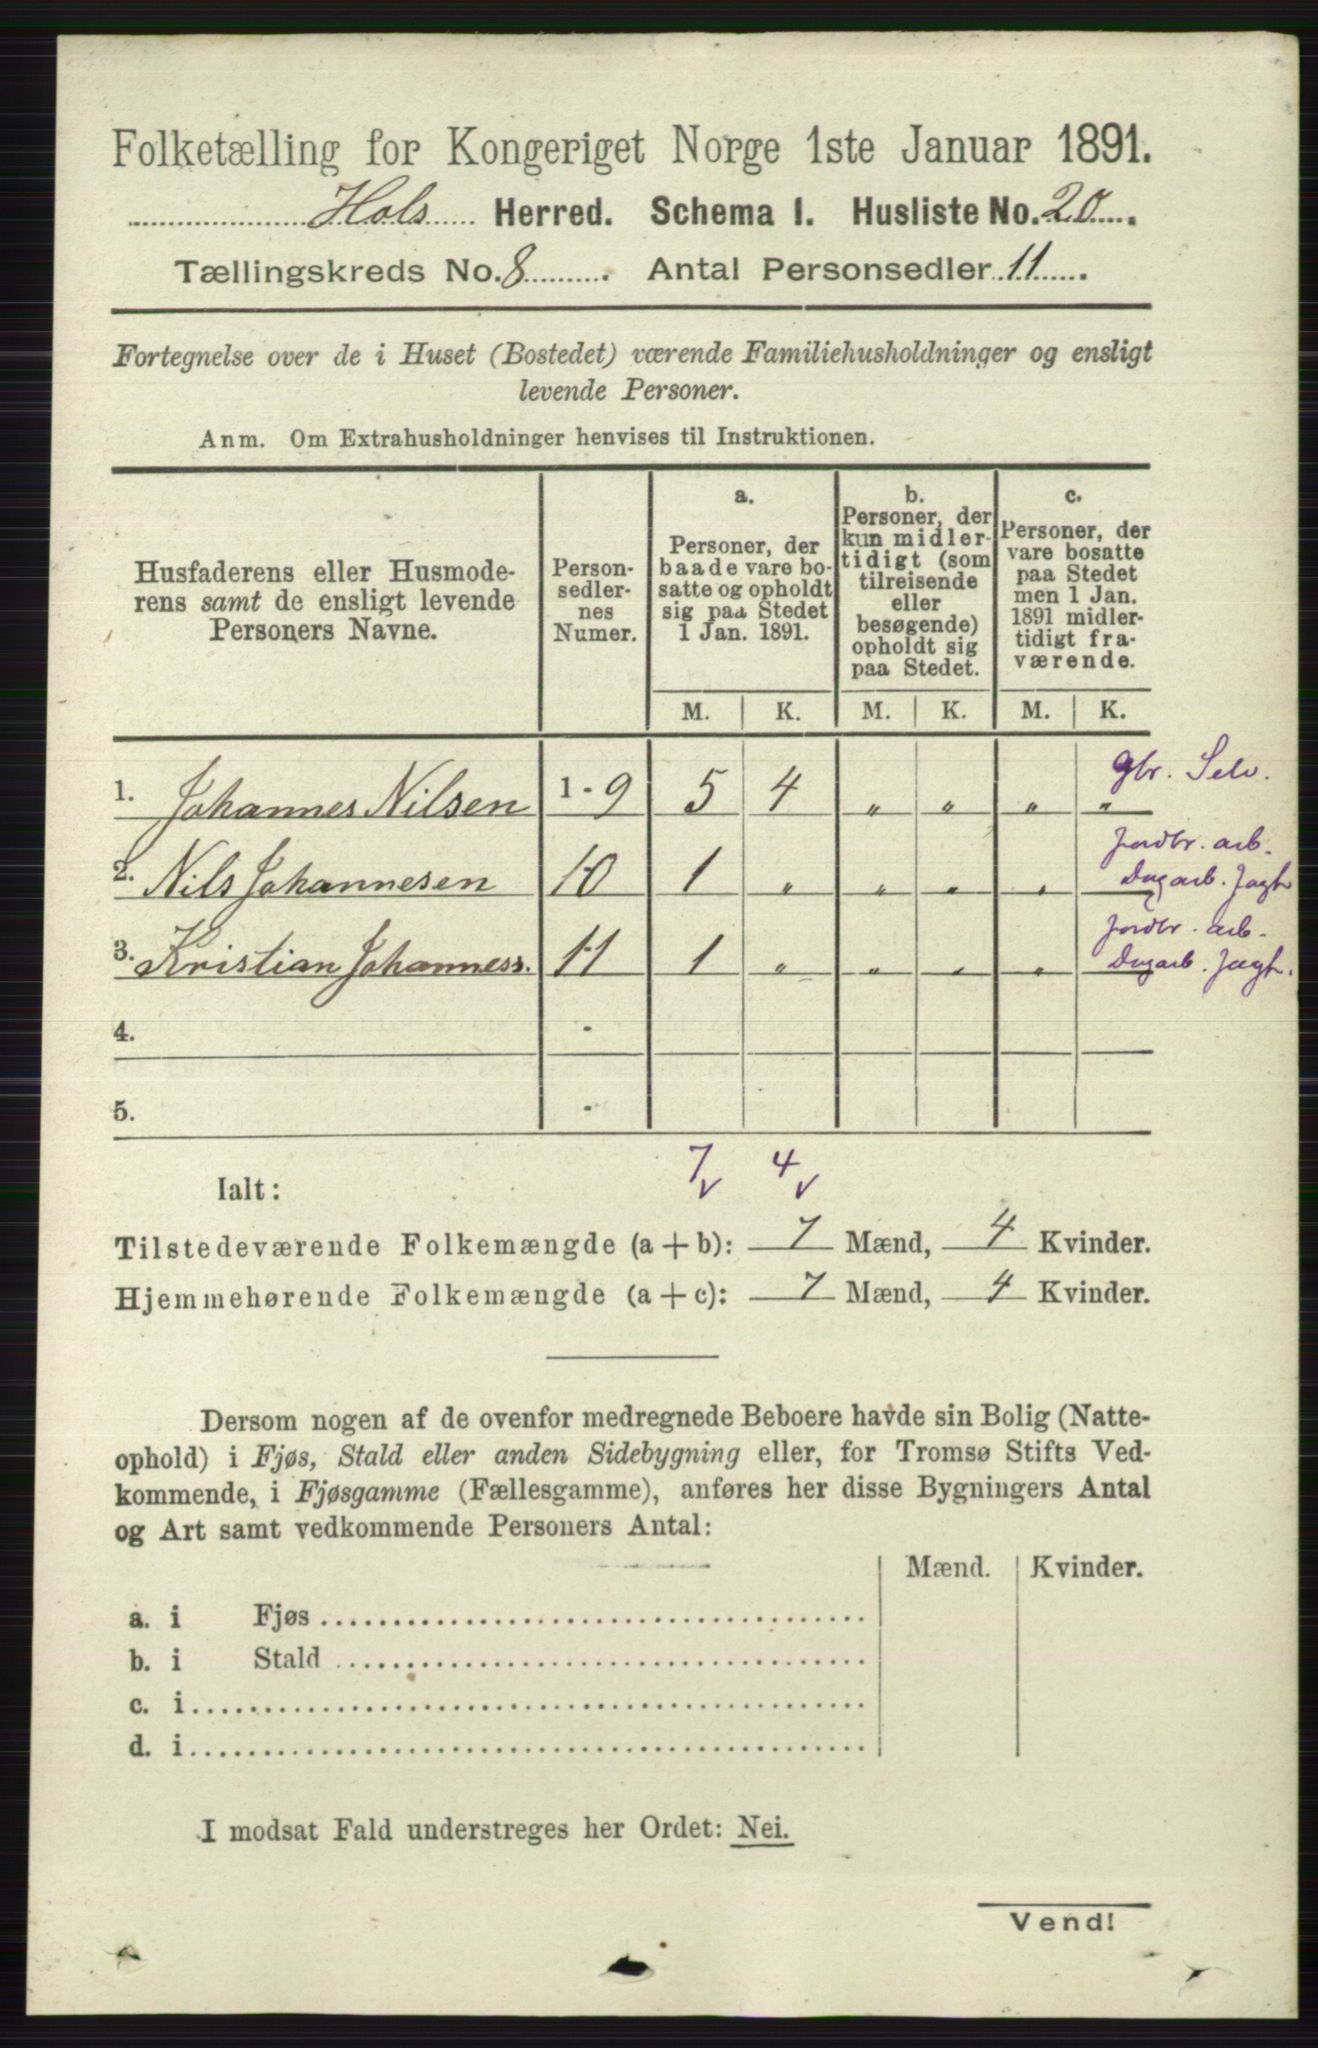 Folketælling for Kongeriget Norge 1ste Januar 1891.
Hols Herred. Schema I. Husliste No. 20.
Tællingskreds No. 8. Antal Personsedler 11.
Fortegnelse over de i Huset (Bostedet) værende Familiehusholdninger og ensligt
levende Personer.
Anm. Om Extrahusholdninger henvises til Instruktionen.
Husfaderens eller Husmode-
rens samt de ensligt levende
Personers Navne.
Person-
sedler-
nes
Numer.
a.
Personer, der
baade vare bo-
satte og opholdt
sig paa Stedet
1 Jan. 1891.
b.
Personer, der
kun midler-
tidigt (som
tilreisende
eller
besøgende)
opholdt sig
paa Stedet.
c.
Personer, der
vare bosatte
paa Stedet
men 1 Jan.
1891 midler-
tidigt fra-
værende.
M. K. M. K. M. K.
gbr. Selv.
1. Johannes Nilsen 1-9 5 4 " " " "
jordbr. arb.
2. Nils Johannesen 10 1 " " " " Dagarb. Jagt
jordbr. arb.
3. Kristian Johanness. 11 1 " " " " Dagarb. Jagt.
4. -
5. -
Ialt: 7 v 4 v
Tilstedeværende Folkemængde (a + b): 7 Mænd, 4 Kvinder.
Hjemmehørende Folkemængde (a + c): 7 Mænd, 4 Kvinder.
Dersom nogen af de ovenfor medregnede Beboere havde sin Bolig (Natte-
ophold) i Fjøs, Stald eller anden Sidebygning eller, for Tromsø Stifts Ved-
kommende, i Fjøsgamme (Fællesgamme), anføres her disse Bygningers Antal
og Art samt vedkommende Personers Antal:
Mænd. Kvinder.
a. i Fjøs
b. i Stald
c. i
d. i
I modsat Fald understreges her Ordet: Nei.
Vend!